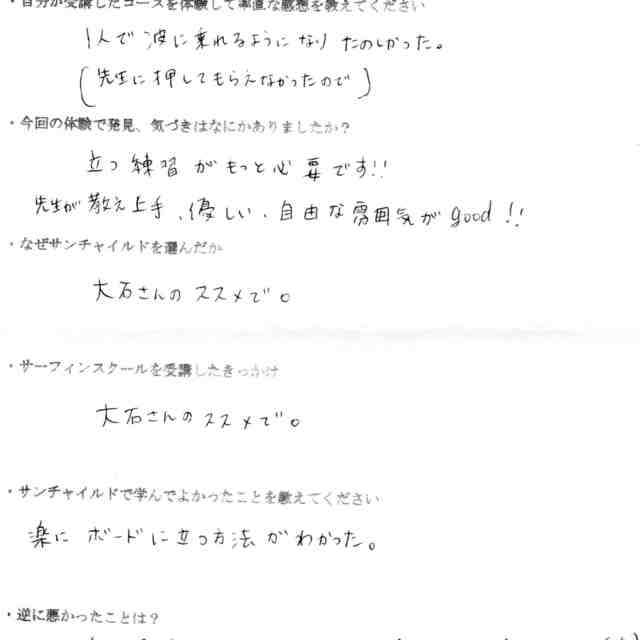 ・自分が受講したコースを体験して率直な感想を教えてください
1人で波に乗れるようになりたのしかった。
(先生に押してもらえなかったので)
・今回の体験で発見、気づきはなにかありましたか？
立つ練習がもっと必要です!!
先生が教え上手、優しい、自由な雰囲気がgood!!
・なぜサンチャイルドを選んだか
大石さんのススメで。
・サーフィンスクールを受講したきっかけ
大石さんのススメで。
・サンチャイルドで学んでよかったことを教えてください
楽にボードに立つ方法がわかった。
・逆に悪かったことは？